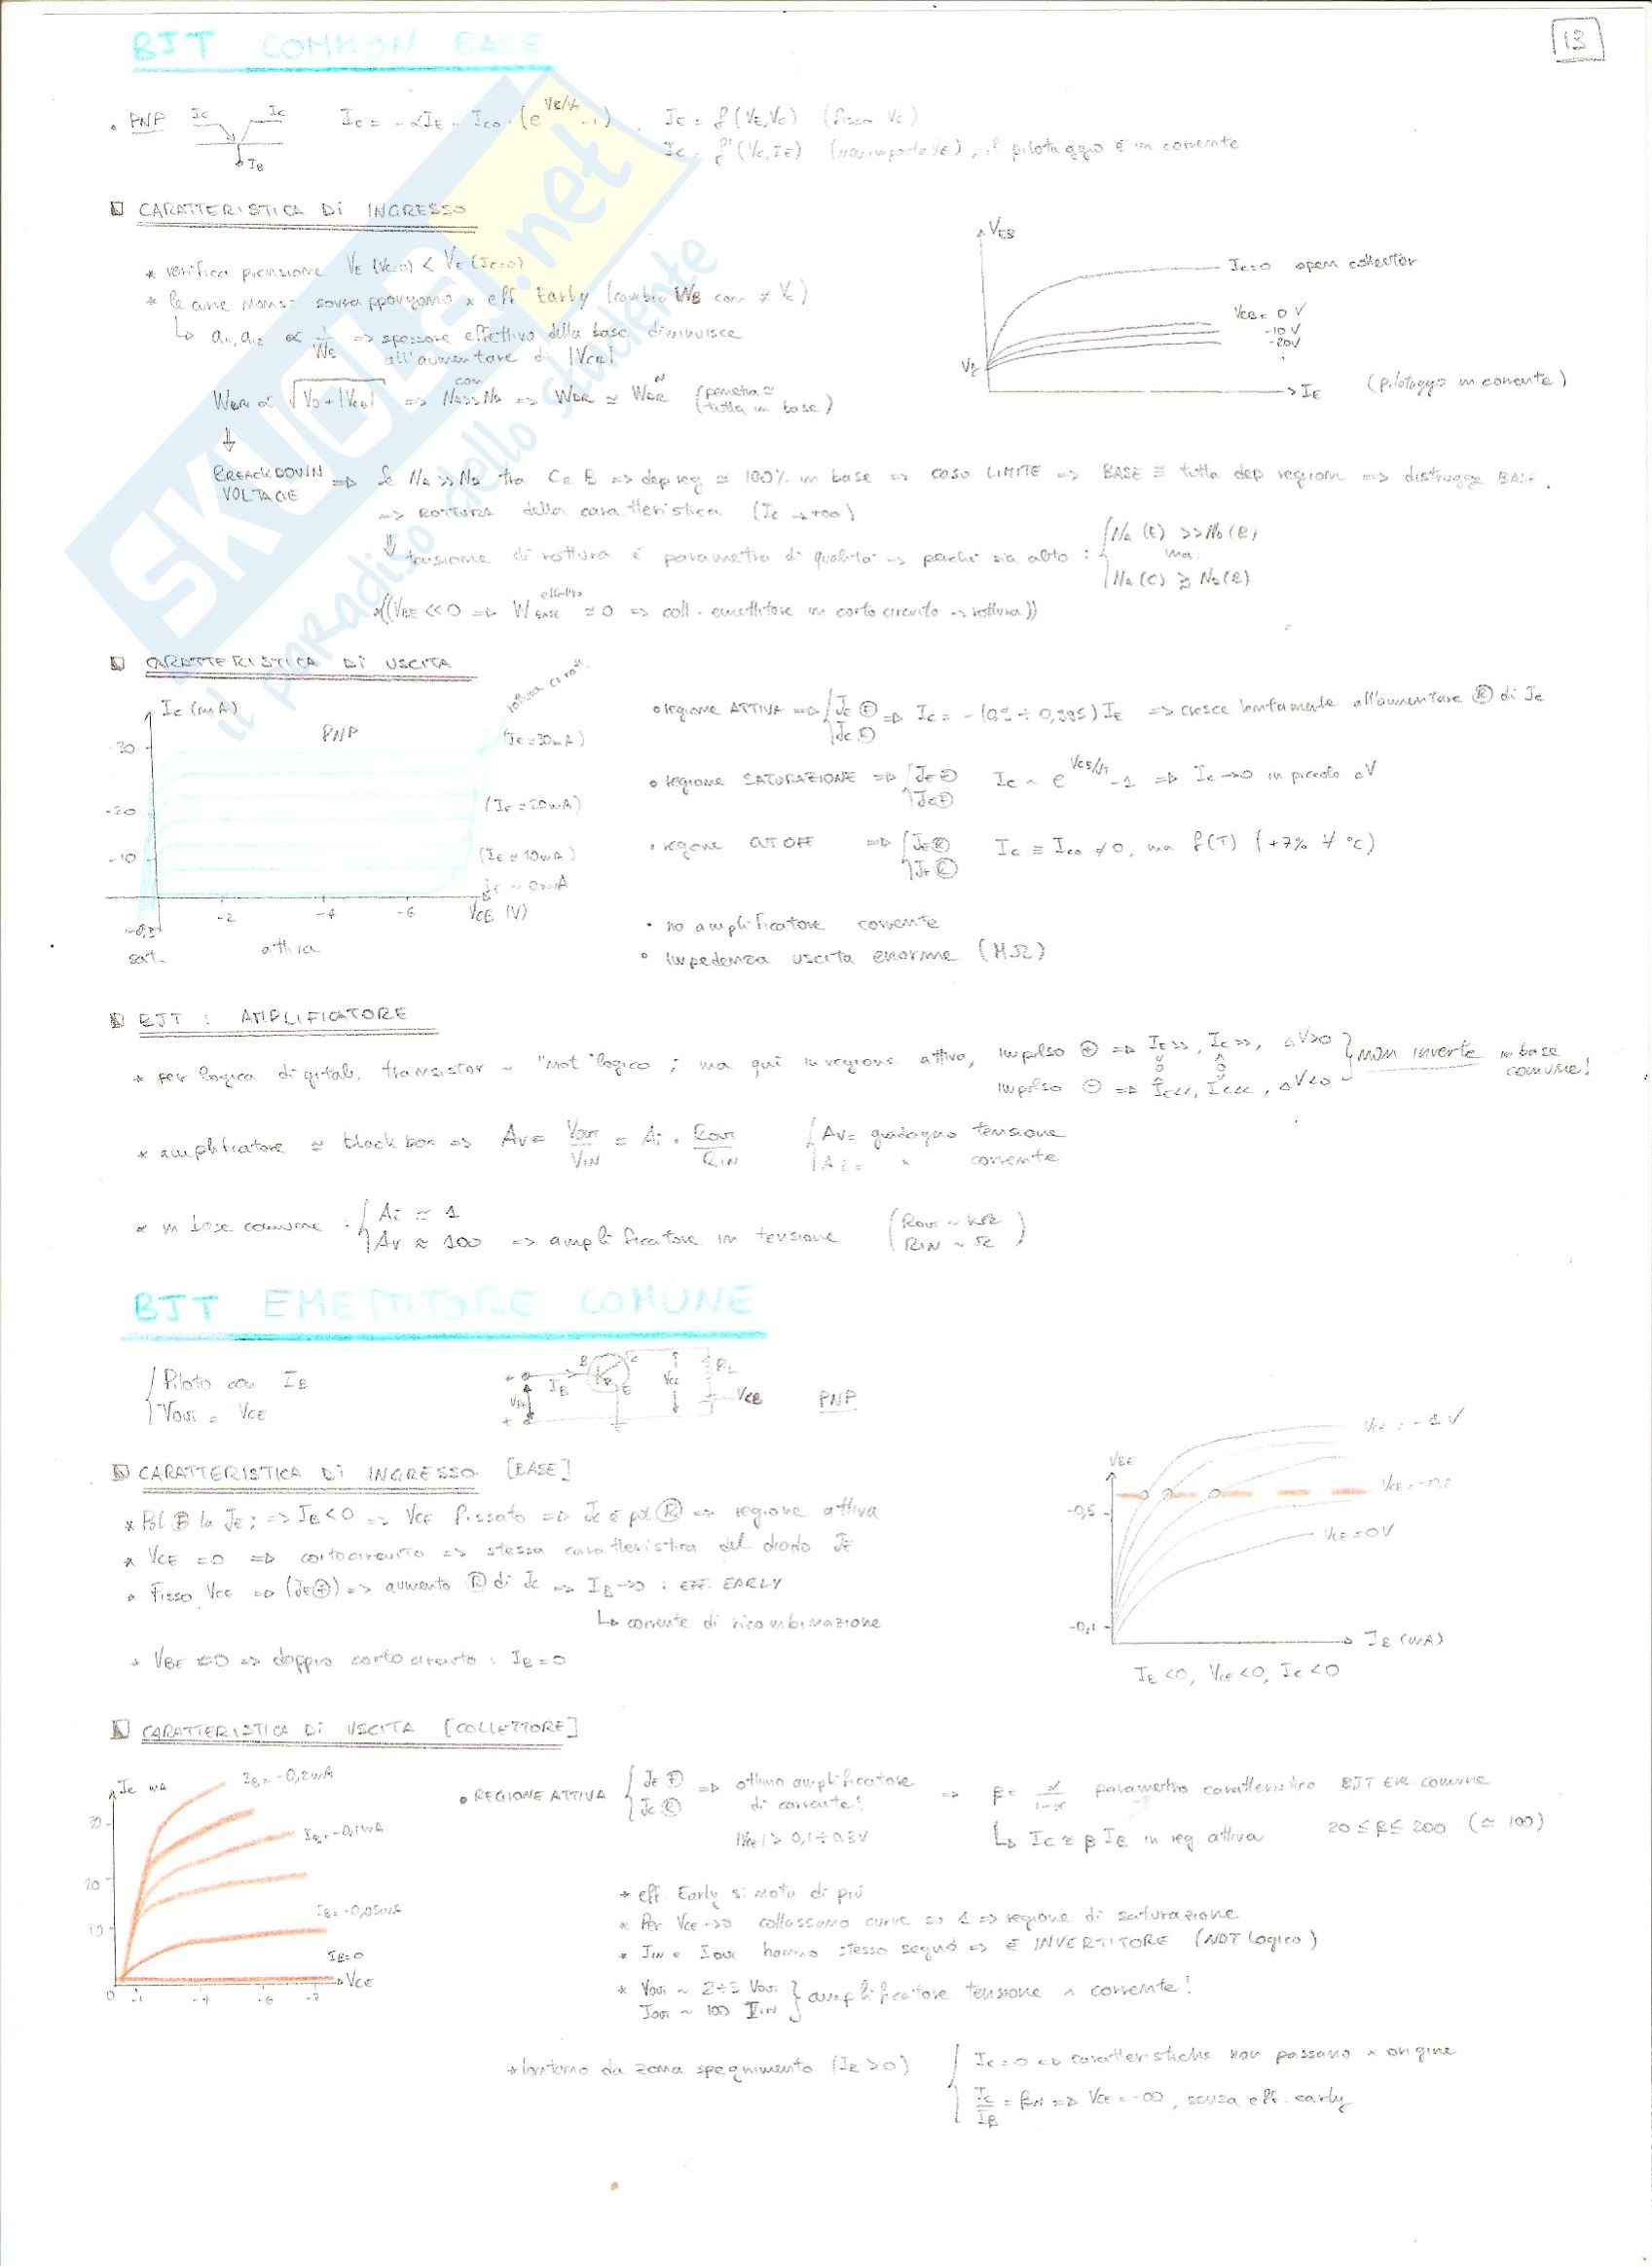 BJT COMMON BASE
13
• PNP Ic Ic IB Ic = -αIE - Ico·(e -1), Ic = f(VE,Vc) (fisso Vc)
Ic = (Vc, IE) , il pilotaggio è in corrente
CARATTERISTICA DI INGRESSO
* verifica previsione VE (Vc=0) < VE (Ic=0)
* le curve non si sovrappongono x eff Early (cambia WB con ≠ Vc)
↳ a11, a12 ∝ 1/WB => spessore effettivo della base diminuisce
all'aumentare di |VCB|
=> NA>>ND => (penetra ≈ tutta in base)
VEB
Ic=0 open collector
VCB = 0 V
-10 V
-20V
Vγ
IE (pilotaggio in corrente)
BREACKDOWN VOLTAGE => Se NA >> ND tra C e B => dep reg ≃ 100% in base => caso LIMITE => BASE ≡ tutta dep region => distrugge BASE.
=> ROTTURA della caratteristica (Ic → +∞)
tensione di rottura è parametro di qualità => perché sia alto : { NA (E) >> ND (B) ma NA (C) ≳ ND (B)
((VBE << 0 => W BASE effettiva ≃ 0 => coll-emettitore in corto circuito => rottura))
CARATTERISTICA DI USCITA
Ic (mA)
PNP
-30
-20
-10
(IE = 30mA)
(IE = 20mA)
(IE = 10mA)
IE = 0mA
-2 -4 -6 VCE (V)
sat.
attiva
• regione ATTIVA => => Ic = -(0,9 ÷ 0,995) IE => cresce lentamente all'aumentare Ⓡ di Jc
• regione SATURAZIONE => Ic ~ e -1 => Ic →0 in piccolo ΔV
• regione CUTOFF => { JE Ⓡ Ic ≡ Ico ≠ 0, ma f(T) (+7% ∀ °C)
• no amplificatore corrente
• Impedenza uscita enorme (MΩ)
BJT : AMPLIFICATORE
* Per logica digitale, transistor ~ "not" logico ; ma qui in regione attiva, impulso ⊕ => IE>>, Ic>>, ΔV>0
impulso ⊖ => IE<<, Ic<<, ΔV<0
} NON inverte in base comune!
* amplificatore ≃ black box => Av = VOUT/VIN = Ai · ROUT/RIN { Av = guadagno tensione
Ai = " corrente
* in base comune : { Ai ≃ 1
Av ≈ 100 => amplificatore in tensione (ROUT ~ kΩ
RIN ~ Ω)
BJT EMETTITORE COMUNE
{ Piloto con IB
VOUT = VCE
B C E IB VIN VCE RL VCB PNP
CARATTERISTICA DI INGRESSO [BASE]
* Pol Ⓕ la JE ; => IB<0 => VCE fissato => Jc è pol Ⓡ => regione attiva
* VCE = 0 => cortocircuito => stessa caratteristica del diodo JE
* Fisso VCE => (JE Ⓕ) => aumento Ⓡ di Jc => IB →0 : EFF. EARLY
↳ corrente di ricombinazione
* VBE = 0 => doppio corto circuito : IB = 0
VBE
-0,5
-0,1
VCE = -1 V
VCE = 0V
IB (mA)
IB <0, VCE <0, Ic <0
CARATTERISTICA DI USCITA [COLLETTORE]
Ic mA
30
20
10
IB = -0,2mA
IB = -0,1mA
IB = -0,05mA
IB = 0
VCE
0 -1 -4 -6
• REGIONE ATTIVA { JE Ⓕ
Jc Ⓡ => ottimo amplificatore di corrente!
|VCE| > 0,1 ÷ 0,3V
=> β = α/1-α parametro caratteristico BJT EM comune
↳ Ic ≃ β IB in reg attiva 20 ≤ β ≤ 200 (≃ 100)
* eff. Early si nota di più
* Per VCE →0 collassano curve in 1 => regione di saturazione
* IIN e IOUT hanno stesso segno => È INVERTITORE (NOT logico)
* VOUT ~ 2÷3
IOUT ~ 100 IIN } amplificatore tensione ∧ corrente!
* Intorno da zona spegnimento (IB > 0) { Ic = 0 => caratteristiche non passano x origine
Ic/IB = βN => VCE = -∞, senza eff. early
SKUOLA.net
il paradiso dello studente